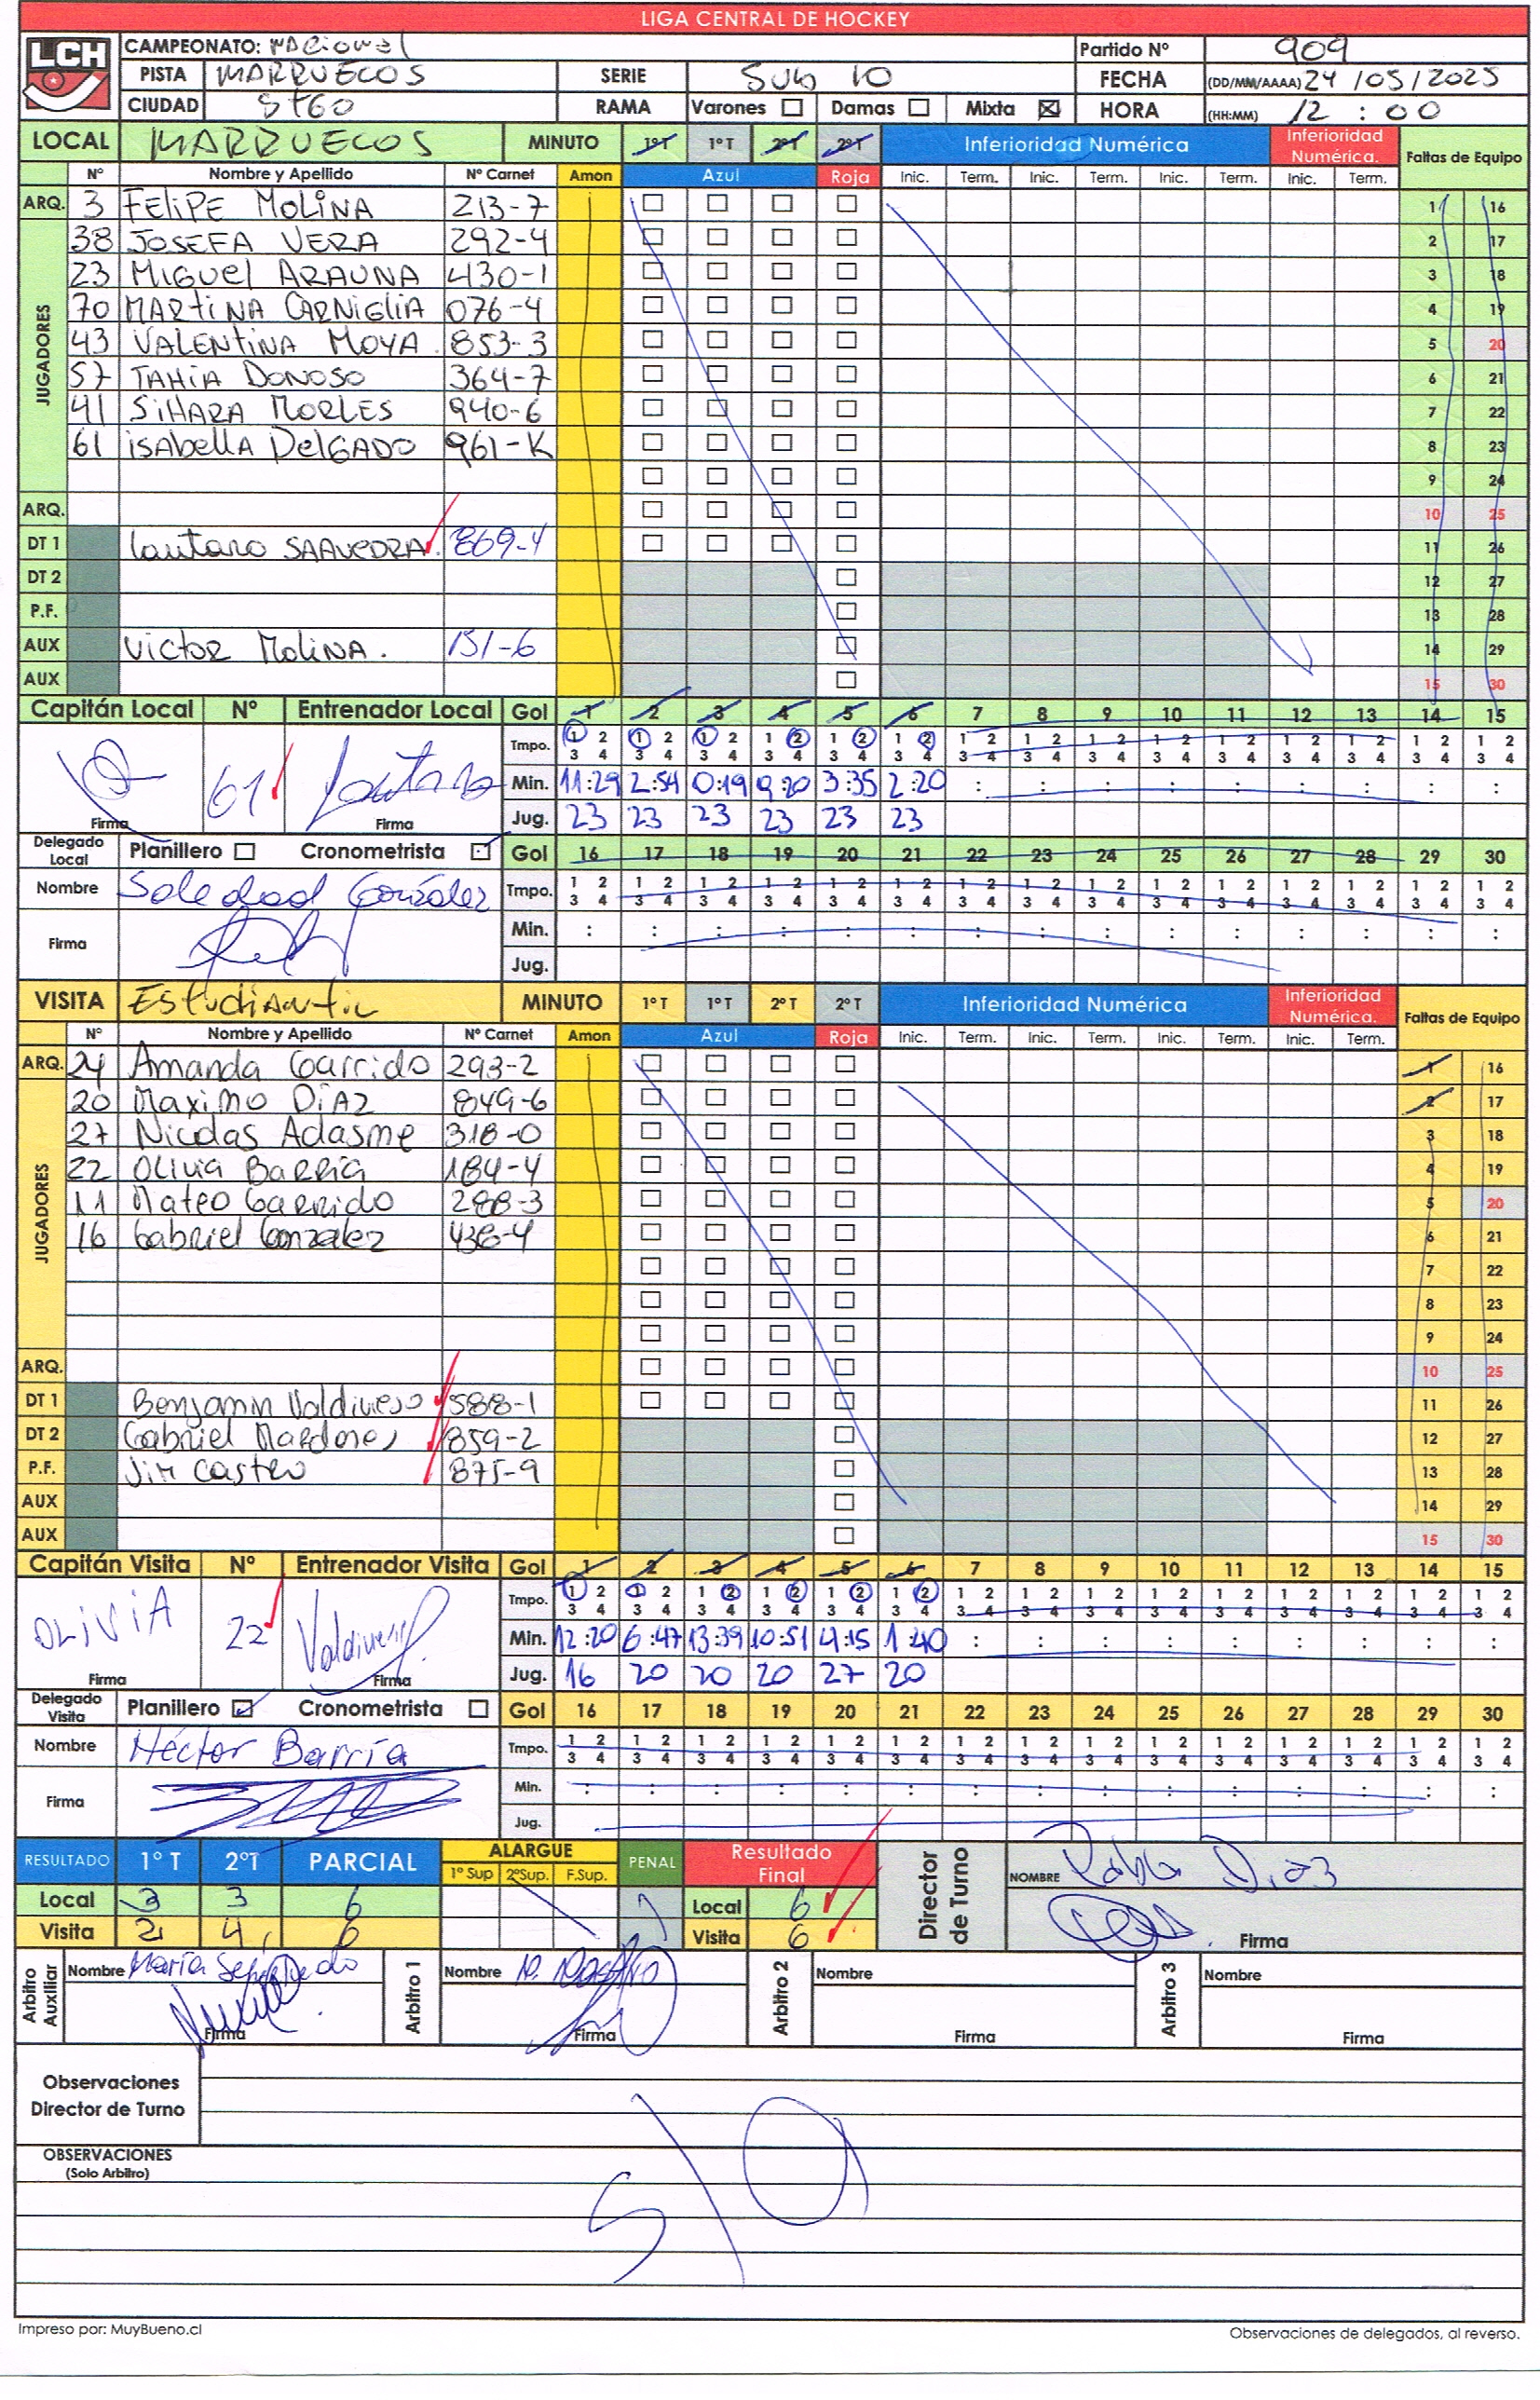 LIGA CENTRAL DE HOCKEY
LCH CAMPEONATO: Nacional Partido Nº 909
PISTA MARRUECOS SERIE Sub 10 FECHA (DD/MM/AAAA) 24/05/2025
CIUDAD STGO RAMA Varones Damas Mixta HORA (HH:MM) 12:00
LOCAL MARRUECOS MINUTO 1ºT 1ºT 2ºT 2ºT Inferioridad Numérica Inferioridad Numérica. Faltas de Equipo
Nº Nombre y Apellido Nº Carnet Amon Azul Roja Inic. Term. Inic. Term. Inic. Term. Inic. Term.
ARQ. 3 FELIPE MOLINA 213-7 1 16
JUGADORES
38 JOSEFA VERA 292-4 2 17
23 MIGUEL ARAUNA 430-1 3 18
70 MARTINA CARNIGLIA 076-4 4 19
43 VALENTINA MOYA 853-3 5 20
57 TAHIA DONOSO 364-7 6 21
41 SIHARA MORLES 940-6 7 22
61 ISABELLA DELGADO 961-K 8 23
9 24
ARQ. 10 25
DT 1 Lautaro SAAVEDRA 869-4 11 26
DT 2 12 27
P.F. 13 28
AUX VICTOR MOLINA. 151-6 14 29
AUX 15 30
Capitán Local Nº Entrenador Local Gol 1 2 3 4 5 6 7 8 9 10 11 12 13 14 15
Tmpo. 1 2 3 4 1 2 3 4 1 2 3 4 1 2 3 4 1 2 3 4 1 2 3 4 1 2 3 4 1 2 3 4 1 2 3 4 1 2 3 4 1 2 3 4 1 2 3 4 1 2 3 4 1 2 3 4 1 2 3 4
61 Lautaro Min. 11:29 2:54 0:19 9:20 3:35 2:20 : : : : : : : : :
Firma Firma Jug. 23 23 23 23 23 23
Delegado Local Planillero Cronometrista Gol 16 17 18 19 20 21 22 23 24 25 26 27 28 29 30
Nombre Soledad González Tmpo. 1 2 3 4 1 2 3 4 1 2 3 4 1 2 3 4 1 2 3 4 1 2 3 4 1 2 3 4 1 2 3 4 1 2 3 4 1 2 3 4 1 2 3 4 1 2 3 4 1 2 3 4 1 2 3 4 1 2 3 4
Firma Min. : : : : : : : : : : : : : : :
Jug.
VISITA Estudiantil MINUTO 1ºT 1ºT 2ºT 2ºT Inferioridad Numérica Inferioridad Numérica. Faltas de Equipo
Nº Nombre y Apellido Nº Carnet Amon Azul Roja Inic. Term. Inic. Term. Inic. Term. Inic. Term.
ARQ. 24 Amanda Garrido 293-2 1 16
JUGADORES
20 Maximo DIAZ 849-6 2 17
27 Nicolas Adasme 318-0 3 18
22 Olivia Barría 184-4 4 19
11 Mateo Garrido 288-3 5 20
16 Gabriel Gonzalez 436-4 6 21
7 22
8 23
9 24
ARQ. 10 25
DT 1 Benjamin Valdivieso 588-1 11 26
DT 2 Gabriel Mardones 859-2 12 27
P.F. Jim Castro 875-9 13 28
AUX 14 29
AUX 15 30
Capitán Visita Nº Entrenador Visita Gol 1 2 3 4 5 6 7 8 9 10 11 12 13 14 15
Tmpo. 1 2 3 4 1 2 3 4 1 2 3 4 1 2 3 4 1 2 3 4 1 2 3 4 1 2 3 4 1 2 3 4 1 2 3 4 1 2 3 4 1 2 3 4 1 2 3 4 1 2 3 4 1 2 3 4 1 2 3 4
OLIVIA 22 Min. 12:20 6:47 13:39 10:51 4:15 1:40 : : : : : : : : :
Firma Firma Jug. 16 20 20 20 27 20
Delegado Visita Planillero Cronometrista Gol 16 17 18 19 20 21 22 23 24 25 26 27 28 29 30
Nombre Héctor Barría Tmpo. 1 2 3 4 1 2 3 4 1 2 3 4 1 2 3 4 1 2 3 4 1 2 3 4 1 2 3 4 1 2 3 4 1 2 3 4 1 2 3 4 1 2 3 4 1 2 3 4 1 2 3 4 1 2 3 4 1 2 3 4
Firma Min. : : : : : : : : : : : : : : :
Jug.
RESULTADO 1º T 2ºT PARCIAL ALARGUE 1º Sup 2ºSup. F.Sup. PENAL Resultado Final Director de Turno NOMBRE Pablo Diaz
Local 3 3 6 Local 6
Visita 2 4 6 Visita 6 Firma
Arbitro Auxiliar Nombre María Sepúlveda Arbitro 1 Nombre Arbitro 2 Nombre Arbitro 3 Nombre
Firma Firma Firma Firma
Observaciones
Director de Turno
OBSERVACIONES
(Solo Arbitro)
S/O
Impreso por: MuyBueno.cl Observaciones de delegados, al reverso.